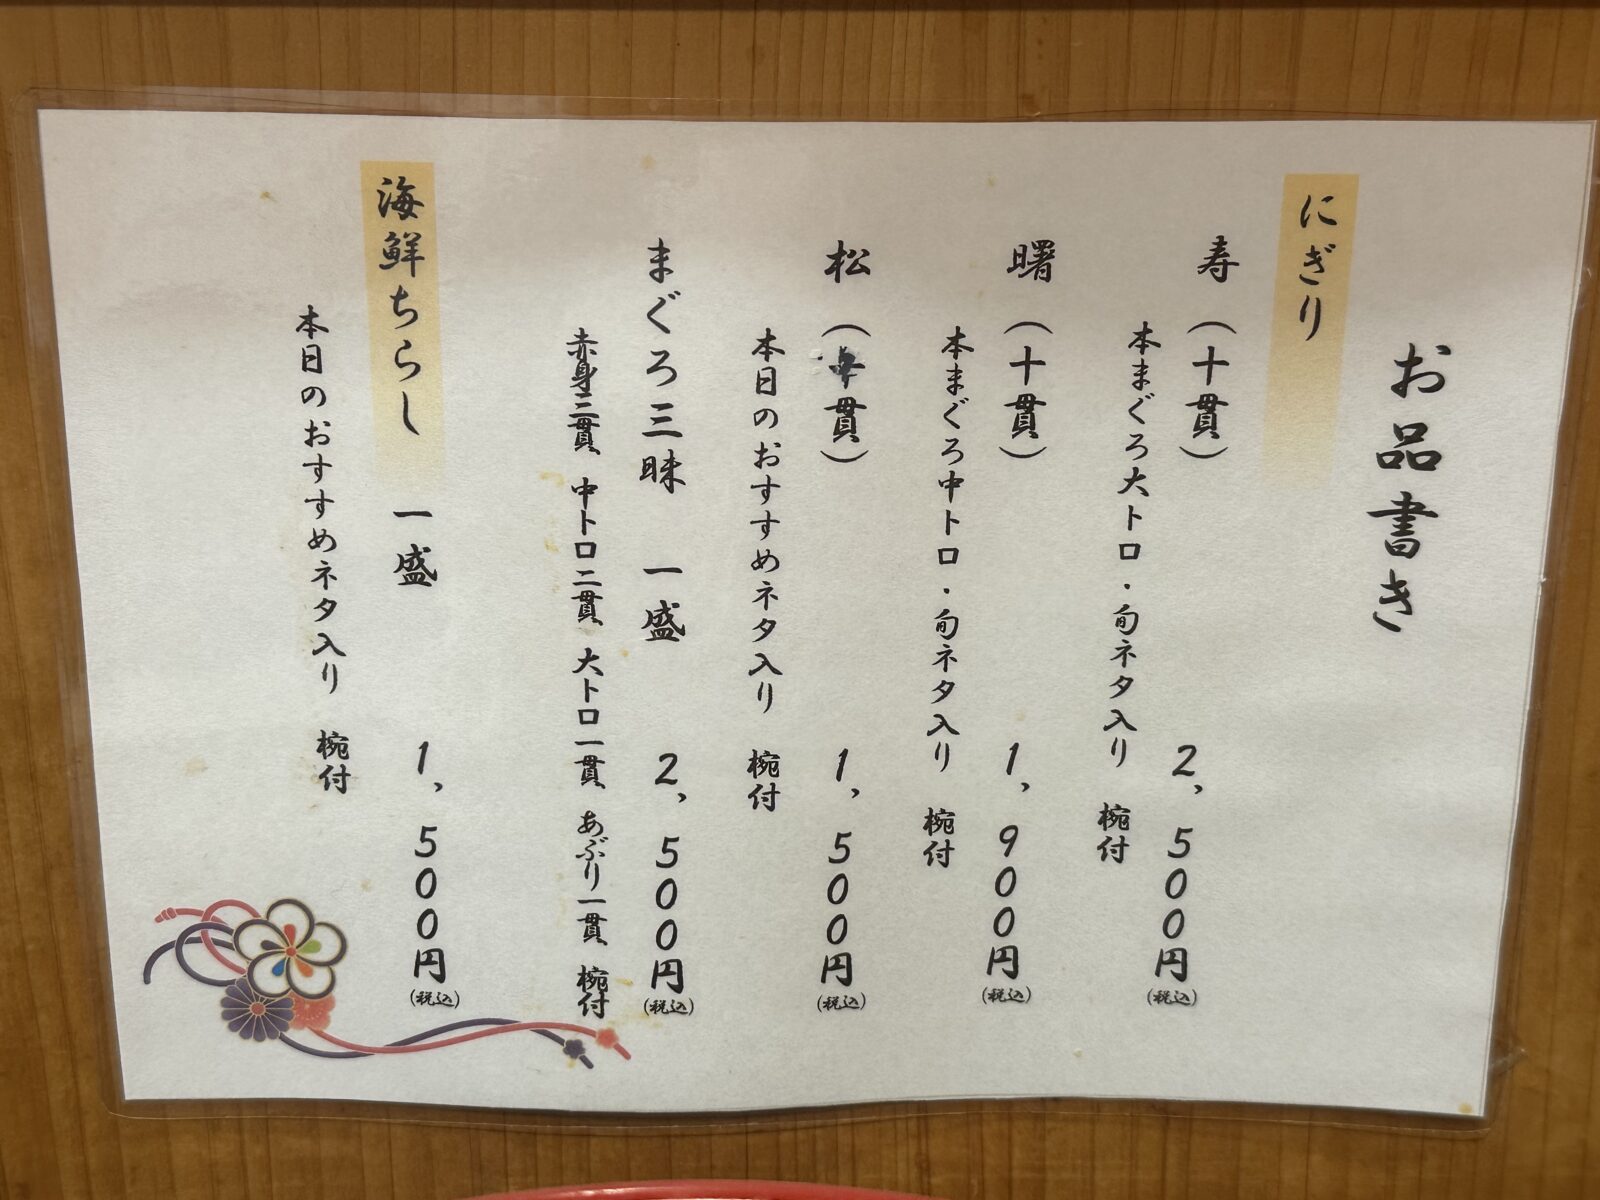 お品書き
にぎり
寿（十貫） 2,500円(税込)
本まぐろ大トロ・旬ネタ入り 椀付
曙（十貫） 1,900円(税込)
本まぐろ中トロ・旬ネタ入り 椀付
松（貫） 1,500円(税込)
本日のおすすめネタ入り 椀付
まぐろ三昧 一盛 2,500円(税込)
赤身三貫 中トロ二貫 大トロ一貫 あぶり一貫 椀付
海鮮ちらし 一盛 1,500円(税込)
本日のおすすめネタ入り 椀付